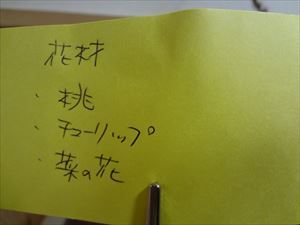 花材
・桃
・チューリップ
・菜の花